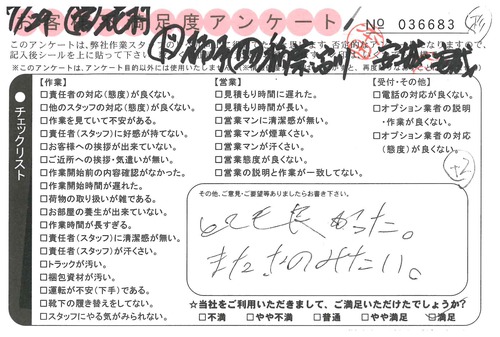 お客様満足度アンケート
No 036683
このアンケートは、弊社作業スタッフの
記入後シールを上に貼って下さい
※このアンケートは、アンケート目的以外には使用いたしません
チェックリスト
【作業】
□責任者の対応(態度)が良くない。
□他のスタッフの対応(態度)が良くない。
□作業を見ていて不安がある。
□責任者(スタッフ)に好感が持てない。
□お客様への挨拶が出来ていない。
□ご近所への挨拶・気遣いが無い。
□作業開始前の内容確認がなかった。
□作業開始時間が遅れた。
□荷物の取り扱いが雑である。
□お部屋の養生が出来ていない。
□作業時間が長すぎる。
□責任者(スタッフ)に清潔感が無い。
□責任者(スタッフ)が汗くさい。
□トラックが汚い。
□梱包資材が汚い。
□運転が不安(下手)である。
□靴下の履き替えをしてない。
□スタッフにやる気がみられない。
【営業】
□見積もり時間に遅れた。
□見積もり時間が長い。
□営業マンに清潔感が無い。
□営業マンが煙草くさい。
□営業マンが汗くさい。
□営業態度が良くない。
□営業の説明と作業が一致してない。
【受付・その他】
□電話の対応が良くない。
□オプション業者の説明
・作業が良くない。
□オプション業者の対応
(態度)が良くない。
+2
その他、ご意見・ご要望等ありましたらお書き下さい。
とても良かった。
またたのみたい。
☆当社をご利用いただきまして、ご満足いただけたでしょうか?
□不満 □やや不満 □普通 □やや満足 ☑満足